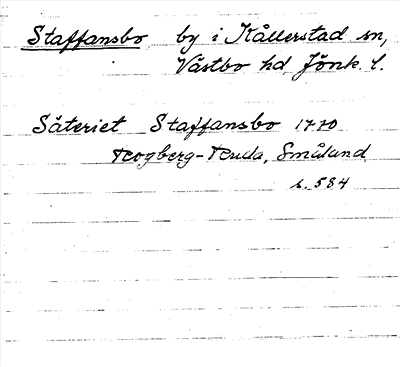 Staffansbo by i Kållerstad sn,
Västbo hd, Jönk. l.
Säteriet Staffansbo 1770
Rogberg-Ruda, Småland
s. 584